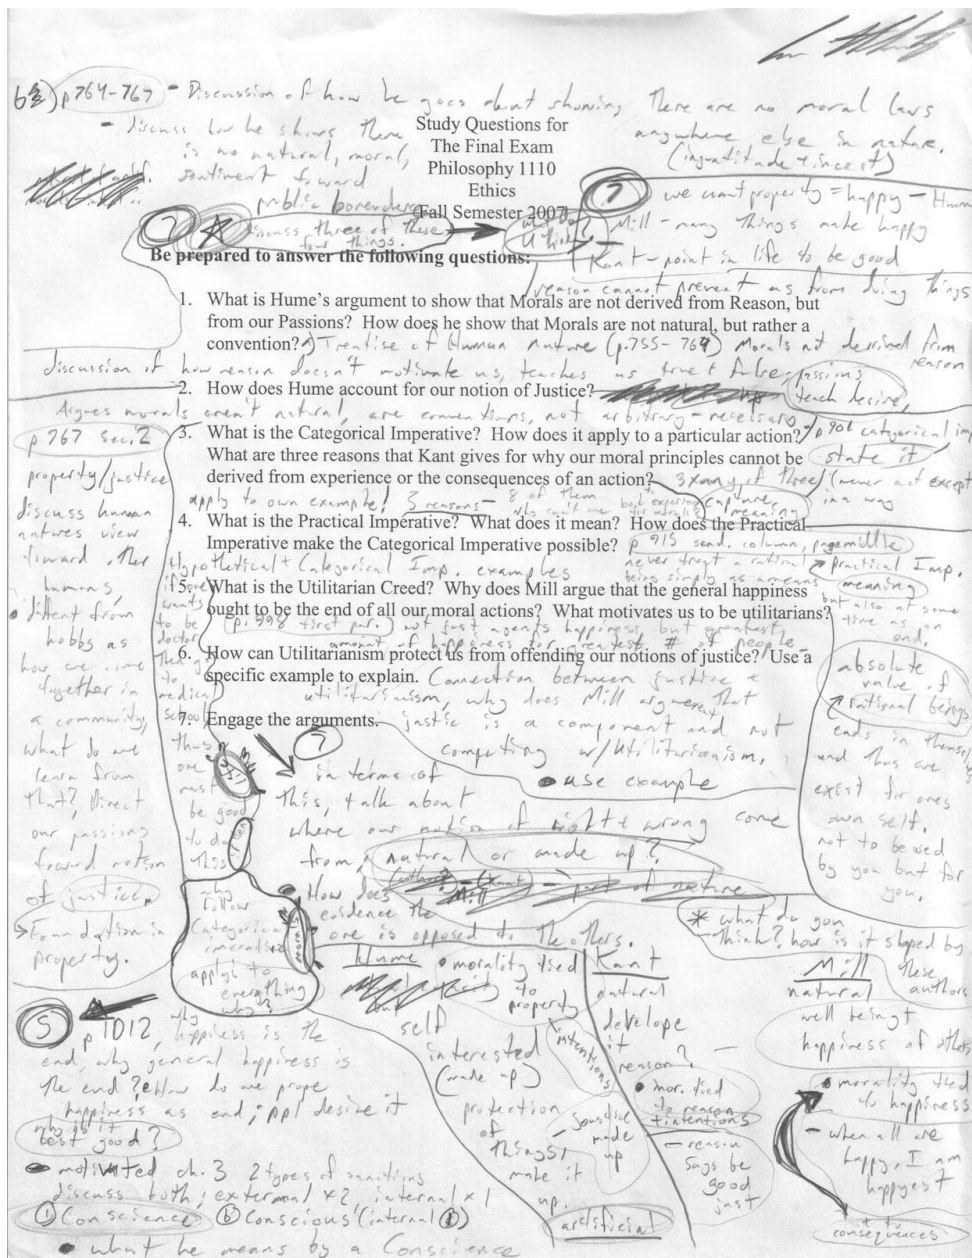 p764-767 - Discussion of how he goes about showing there are no moral laws
anywhere else in nature.
(ingratitude + incest)
- discuss how he shows there
is no natural, moral,
sentiment toward
public
Study Questions for
The Final Exam
Philosophy 1110
Ethics
Fall Semester 2007
discuss three of these
four things.
7
we want property = happy - Hume
Mill - many things make happy
Kant - point in life to be good
Be prepared to answer the following questions:
reason cannot prevent us from doing things
1. What is Hume's argument to show that Morals are not derived from Reason, but
from our Passions? How does he show that Morals are not natural, but rather a
convention?
Treatise of Human nature (p.755-764) Morals not derived from
reason
discussion of how reason doesn't motivate us, teaches us true + false; passions
teach desire,
2. How does Hume account for our notion of Justice?
Argues morals aren't natural, are conventions, not arbitrary - necessary
3. What is the Categorical Imperative? How does it apply to a particular action?
What are three reasons that Kant gives for why our moral principles cannot be
derived from experience or the consequences of an action?
p901 categorical imp
state it
(never act except
in a way
3 reasons - 8 of them
apply to own example!
meaning
4. What is the Practical Imperative? What does it mean? How does the Practical
Imperative make the Categorical Imperative possible?
p 915 column, page middle
never treat a rational
being simply as a means
but also at same
time as an
end.
Practical Imp.
meaning
Hypothetical + Categorical Imp. examples
5. What is the Utilitarian Creed? Why does Mill argue that the general happiness
ought to be the end of all our moral actions? What motivates us to be utilitarians?
(p. 998 first par.) not just agents happiness, but greatest
amount of happiness for greatest # of people
6. How can Utilitarianism protect us from offending our notions of justice? Use a
specific example to explain.
Connection between justice +
utilitarianism, why does Mill argue that
justic is a component and not
competing w/utilitarianism.
• use example
7. Engage the arguments.
p 767 Sec. 2
property/justice
discuss human
natures view
toward other
humans,
• different from
hobbs as
how we come
together in
a community,
what do we
learn from
that? Direct
our passions
toward notion
of justice.
Foundation in
property.
wants
to be
doctor
then go
to
medical
school
thus
one
must
be good
to do
this
why
follow
Categorical
applys to
everything
why?
absolute
value of
rational beings
ends in themselves
and thus are
exist for ones
own self.
not to be used
by you but for
you.
7
in terms of
this, talk about
where our notion of right + wrong come
from, natural or made up?
part of nature
How does
evidence the
one is opposed to the others.
* what do you
think? how is it shaped by
these
authors
Hume
• morality tied
to
property
self
interested
(made up)
protection
of
things,
make it
up.
intentions
made
up
artificial
Kant
natural
develope
it
reason?
• mor. tied
to reason
+ intentions
- reason
says be
good
just
Mill
natural
well being +
happiness of others
• morality tied
to happiness
- when all are
happy, I am
happyest
consequences
5
p 1012, why happiness is the
end, why general happiness is
the end? How do we prope
happiness as end; ppl desire it
why is it
best good?
• motivated ch. 3 2 types of sanctions
discuss both; external x2 internal x 1
Conscience Conscious (internal
• what he means by a Conscience